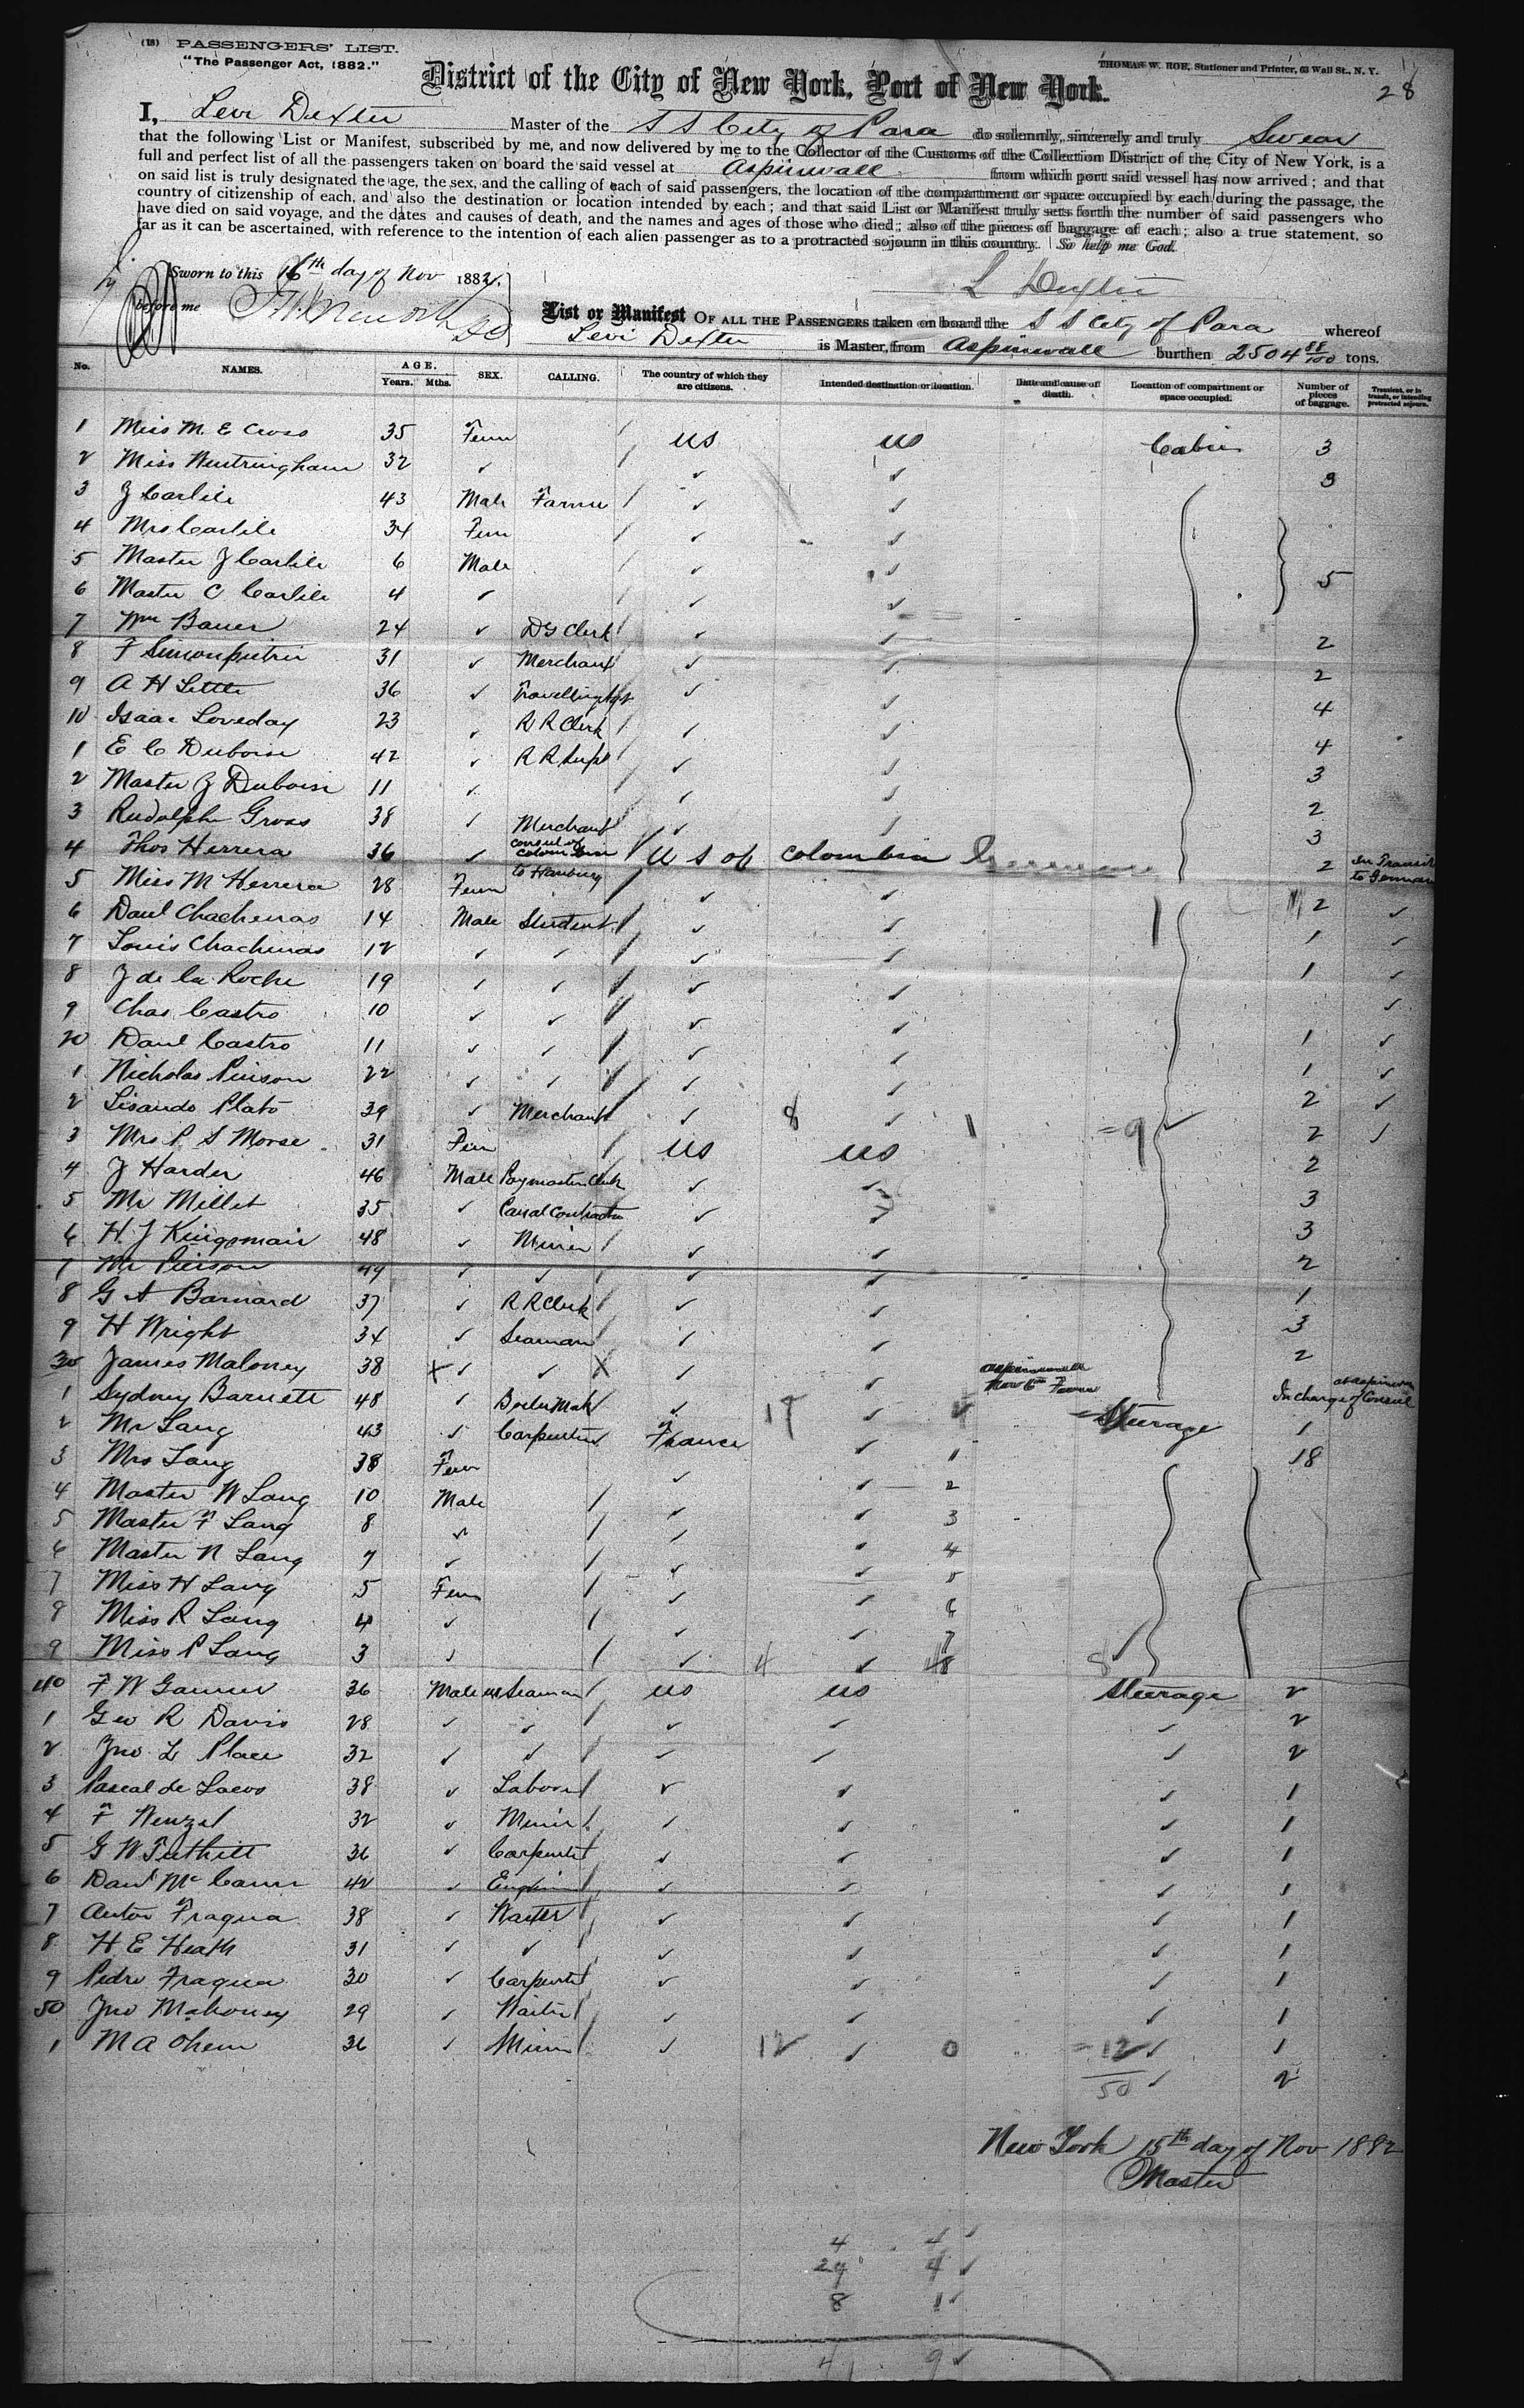 (18) PASSENGERS' LIST.
"The Passenger Act, 1882."
THOMAS W. ROE, Stationer and Printer, 63 Wall St., N. Y.
28
District of the City of New York, Port of New York.
I, Levi Dexter Master of the S S City of Para do solemnly, sincerely and truly Swear
that the following List or Manifest, subscribed by me, and now delivered by me to the Collector of the Customs of the Collection District of the City of New York, is a
full and perfect list of all the passengers taken on board the said vessel at Aspinwall from which port said vessel has now arrived; and that
on said list is truly designated the age, the sex, and the calling of each of said passengers, the location of the compartment or space occupied by each during the passage, the
country of citizenship of each, and also the destination or location intended by each; and that said List or Manifest truly sets forth the number of said passengers who
have died on said voyage, and the dates and causes of death, and the names and ages of those who died; also of the pieces of baggage of each; also a true statement, so
far as it can be ascertained, with reference to the intention of each alien passenger as to a protracted sojourn in this country. So help me God.
Sworn to this 16th day of Nov 1882.
L Dexter
before me
List or Manifest OF ALL THE PASSENGERS taken on board the S S City of Para whereof
Levi Dexter is Master, from Aspinwall burthen 2504 88/100 tons.
No. NAMES. AGE. Years. Mths. SEX. CALLING. The country of which they are citizens. Intended destination or location. Date and cause of death. Location of compartment or space occupied. Number of pieces of baggage. Transient, or in transit, or intending protracted sojourn.
1 Miss M. E Cross 35 Fem US US Cabin 3
2 Miss Neustringham 32 ✓ ✓ ✓ 3
3 J Carlile 43 Male Farmer ✓ ✓
4 Mrs Carlile 34 Fem ✓ ✓
5 Master J Carlile 6 Male ✓ ✓ 5
6 Master C Carlile 4 ✓ ✓ ✓
7 Wm Bauer 24 ✓ DG Clerk ✓ ✓ 2
8 F Simonpietri 31 ✓ Merchant ✓ ✓ 2
9 A H Little 36 ✓ Travelling Agt ✓ ✓ 4
10 Isaac Loveday 23 ✓ R R Clerk ✓ ✓ 4
1 E C Duboise 42 ✓ R R Supt ✓ ✓ 3
2 Master J Duboise 11 ✓ ✓ ✓ 2
3 Rudolph Gross 38 ✓ Merchant ✓ ✓ 3
4 Thos Herrera 36 ✓ Consul of Colombia to Hamburg U S of Colombia Germany 2 In Transit to Germany
5 Miss M Herrera 28 Fem ✓ ✓ 2 ✓
6 Danl Chacheras 14 Male Student ✓ ✓ 1 ✓
7 Louis Chacheras 12 ✓ ✓ ✓ ✓ 1 ✓
8 J de la Roche 19 ✓ ✓ ✓ ✓ ✓
9 Chas Castro 10 ✓ ✓ ✓ ✓ 1 ✓
20 Danl Castro 11 ✓ ✓ ✓ ✓ 1 ✓
1 Nicholas Pinson 22 ✓ ✓ ✓ ✓ 2 ✓
2 Lisando Plato 39 ✓ Merchant ✓ 8 ✓ 1 = 9 ✓ 2 ✓
3 Mrs P S Morse 31 Fem US US 2
4 J Harder 46 Male Paymasters Clerk ✓ ✓ 3
5 Mr Millet 35 ✓ Canal Contractor ✓ ✓ 3
6 H. J Kingsmair 48 ✓ Miner ✓ ✓ 2
7 Mr Pierson 49 ✓ ✓ ✓ ✓ 1
8 G A Barnard 37 ✓ R R Clerk ✓ ✓ 3
9 H Wright 34 ✓ Seaman ✓ ✓ 2
30 James Maloney 38 X ✓ ✓ X ✓ ✓ Aspinwall Nov 6th Fever In charge of Consul at Aspinwall
1 Sydney Barnett 48 ✓ Boiler Mak ✓ 17 ✓ Steerage 1
2 Mr Lang 43 ✓ Carpenter France ✓ 1 18
3 Mrs Lang 38 Fem ✓ ✓ 2
4 Master W Lang 10 Male ✓ ✓ 3
5 Master F Lang 8 ✓ ✓ ✓ 4
6 Master N Lang 7 ✓ ✓ ✓ 5
7 Miss H Lang 5 Fem ✓ ✓ 6
8 Miss R Lang 4 ✓ ✓ ✓ 7
9 Miss P Lang 3 ✓ ✓ 4 ✓ 48 8 ✓
40 F W Ganner 36 Male Seaman US US Steerage 2
1 Geo R Davis 28 ✓ ✓ ✓ ✓ ✓ 2
2 Jno L Place 32 ✓ ✓ ✓ ✓ ✓ 2
3 Pascal de Laevo 38 ✓ Laborer ✓ ✓ ✓ 1
4 F Wenzel 32 ✓ Miner ✓ ✓ ✓ 1
5 G W Tuthill 36 ✓ Carpenter ✓ ✓ ✓ 1
6 Danl McCann 42 ✓ Engineer ✓ ✓ ✓ 1
7 Anton Fraqua 38 ✓ Waiter ✓ ✓ ✓ 1
8 H E Heath 31 ✓ ✓ ✓ ✓ ✓ 1
9 Pedro Fraqua 30 ✓ Carpenter ✓ ✓ ✓ 1
50 Jno Mahoney 29 ✓ Waiter ✓ ✓ ✓ 1
1 M A Ohern 36 ✓ Miner ✓ 12 ✓ 0 = 12 ✓ 1
50 ✓ 2
New York 15th day of Nov 1882
Master
4 4 ✓
29 4 ✓
8 1 ✓
41 9 ✓